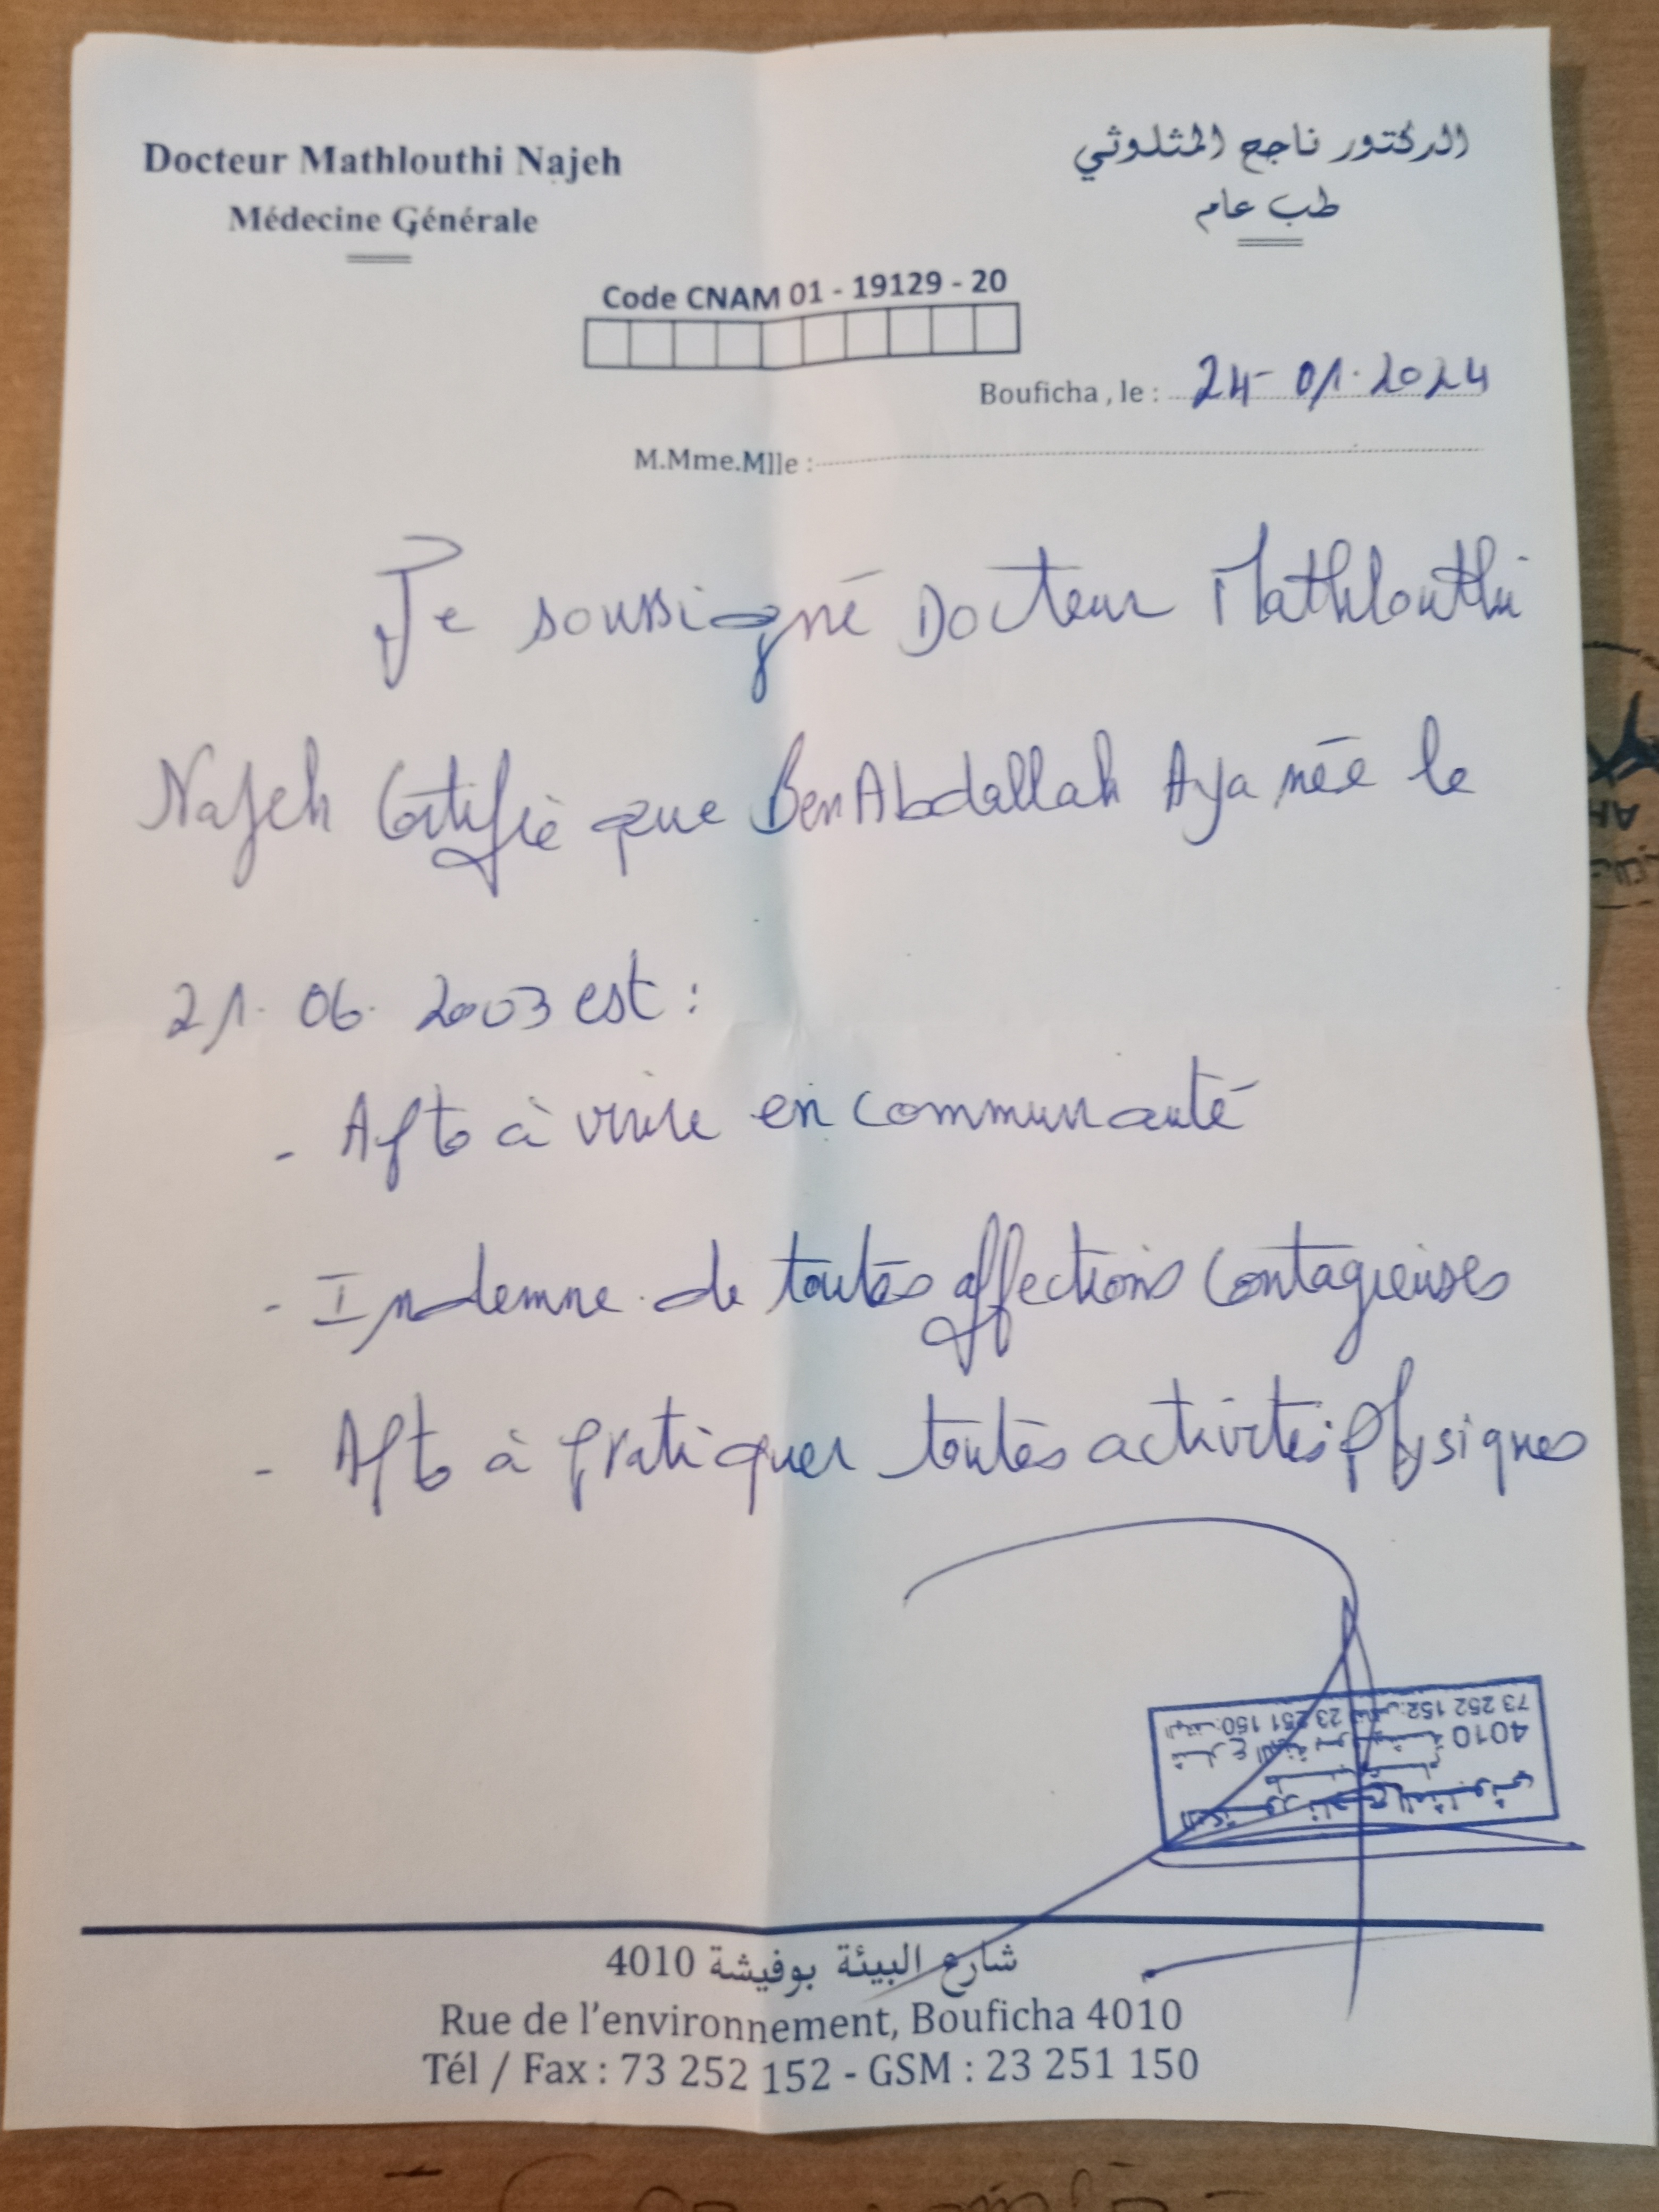 Docteur Mathlouthi Najeh
Médecine Générale
الدكتور ناجح المثلوثي
طب عام
Code CNAM 01 - 19129 - 20
Bouficha , le : 24-01-2024
M.Mme.Mlle :
Je soussigné Docteur Mathlouthi
Najeh Certifie que Ben Abdallah Aya née le
21. 06. 2003 est :
- Apte à vivre en communauté
- Indemne de toutes affections contagieuses
- Apte à pratiquer toutes activités physiques
الدكتور ناجح المثلوثي
طب عام
شارع البيئة بوفيشة 4010
الهاتف: 150 251 23 فاكس: 152 252 73
شارع البيئة بوفيشة 4010
Rue de l'environnement, Bouficha 4010
Tél / Fax : 73 252 152 - GSM : 23 251 150